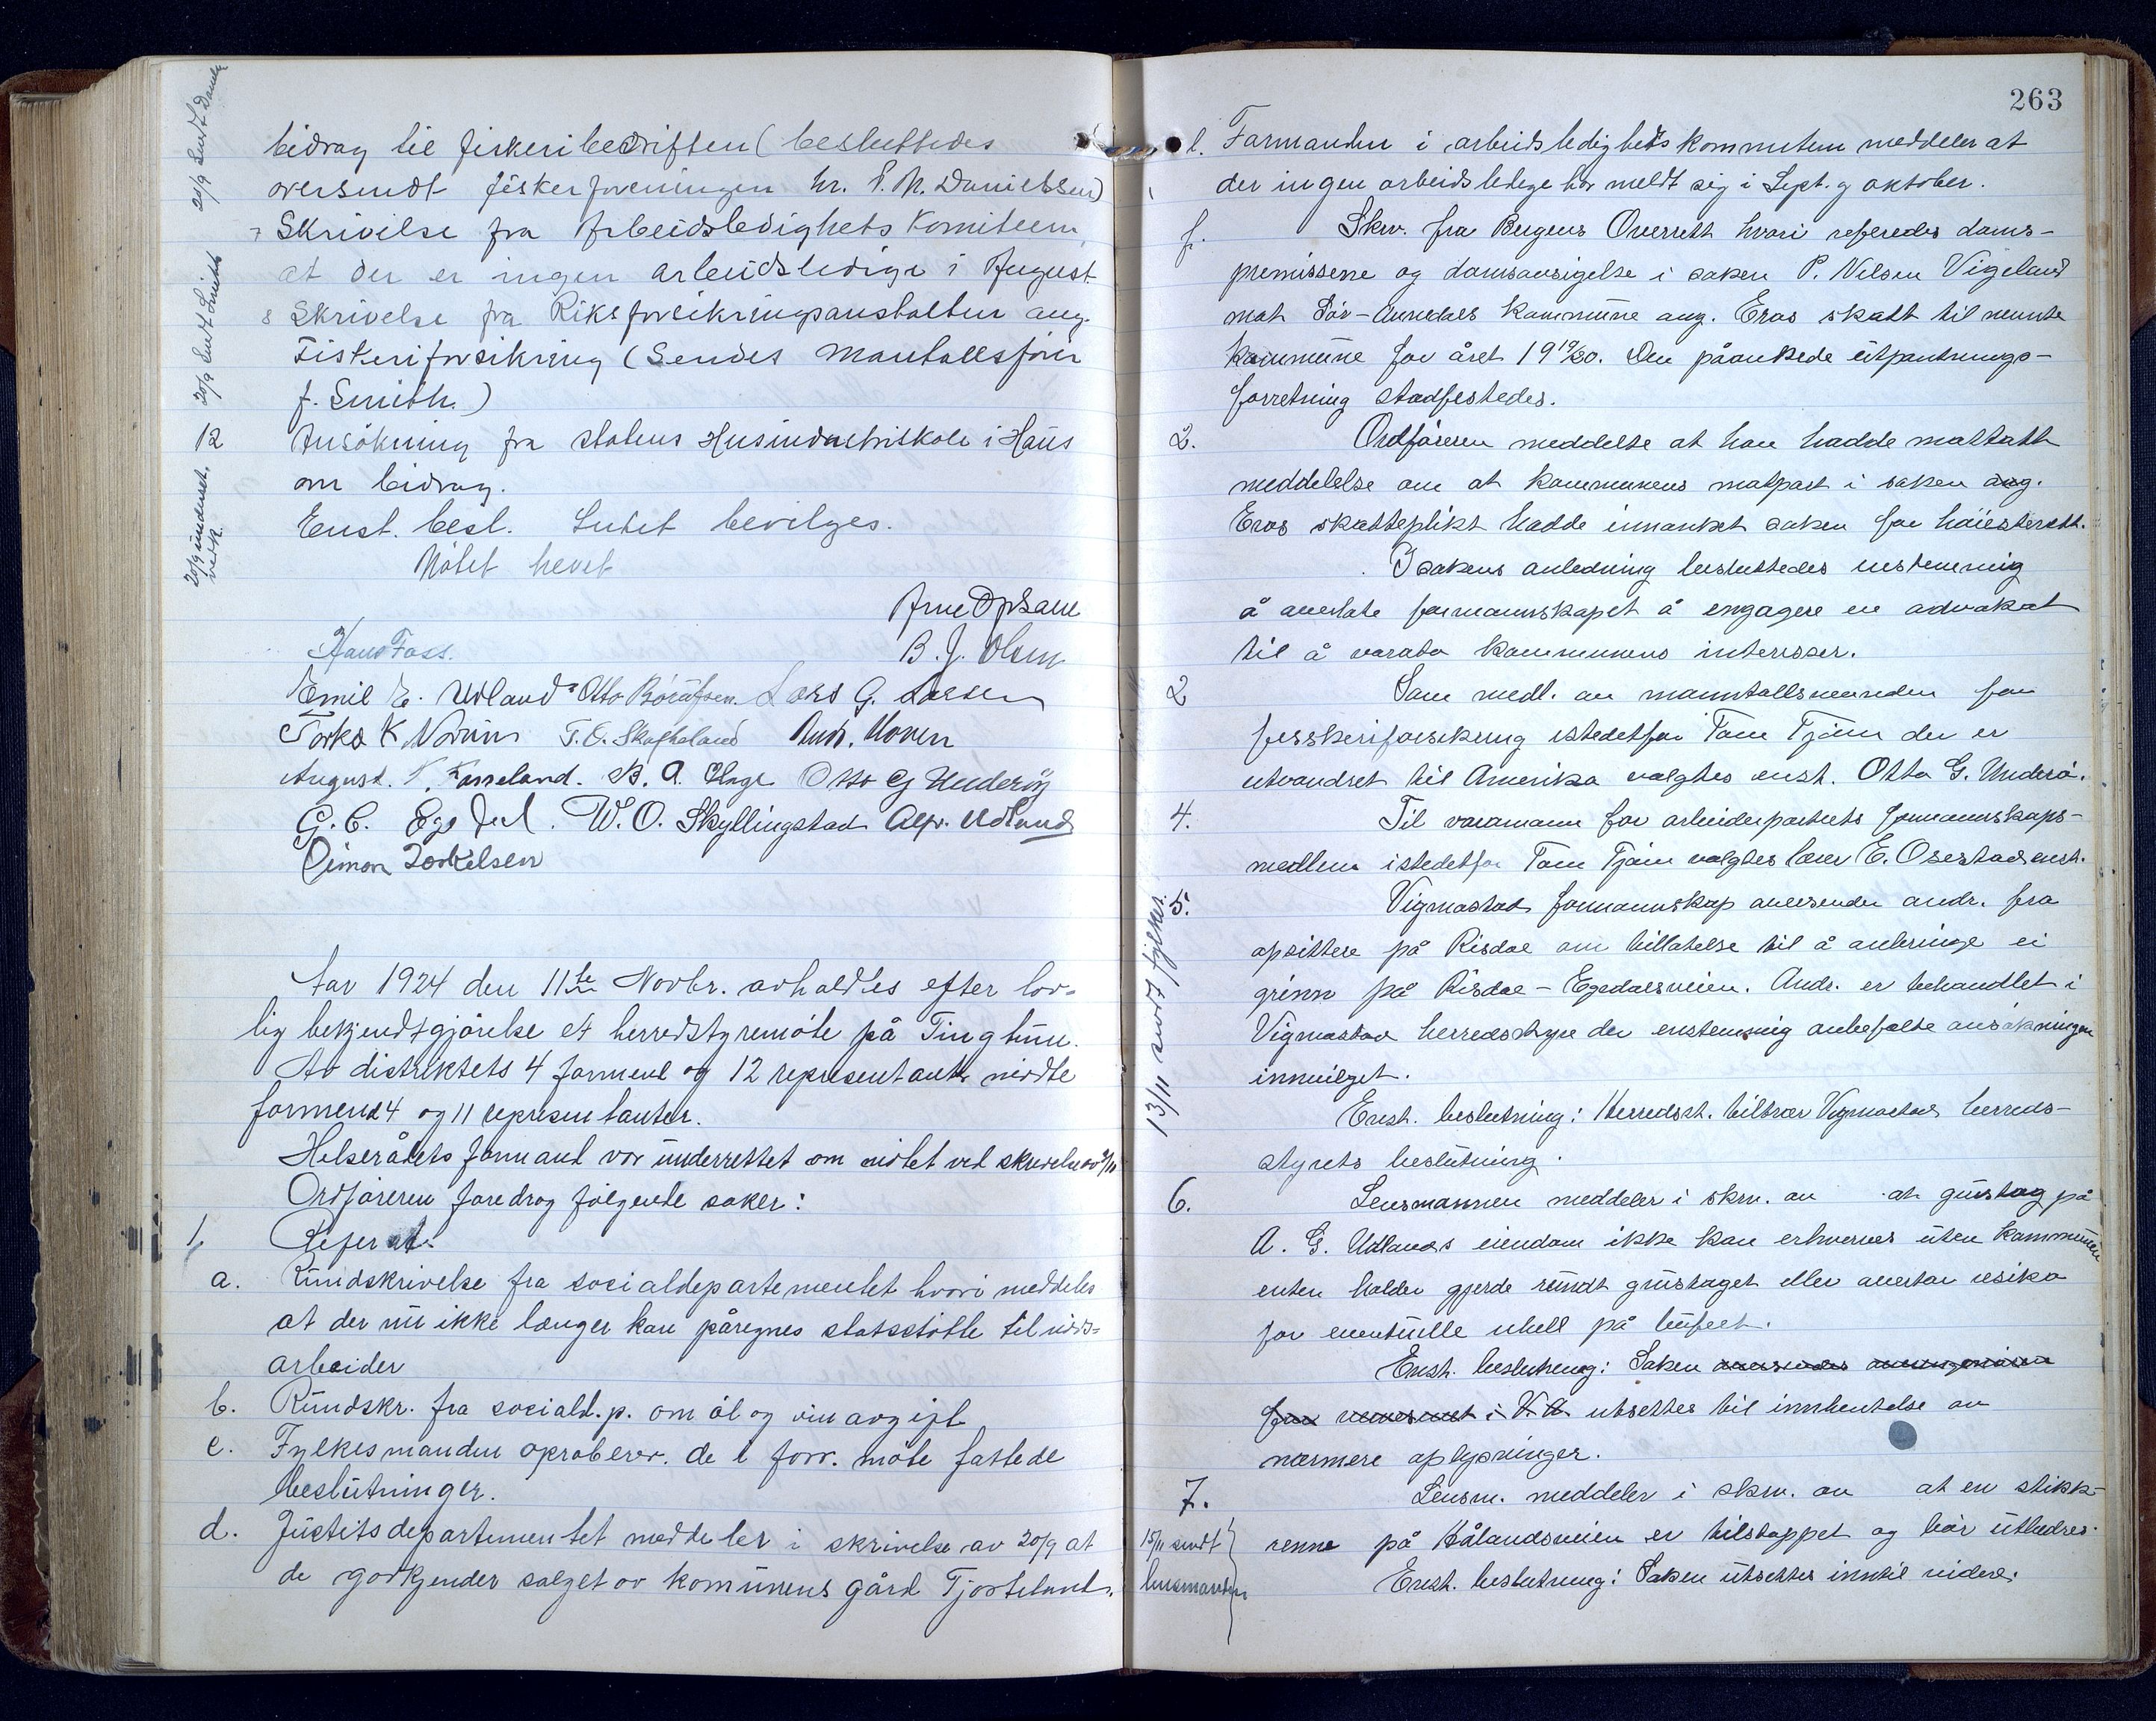 bidrag til fiskeribedriften (besluttedes
oversendt fiskerforeningen hr. P. N. Danielsen)
7 Skrivelse fra Arbeidsledighets Komiteen,
at der er ingen arbeidsledige i August.
8 Skrivelse fra Riksforsikringsanstalten ang.
Fiskeriforsikring (Sendes Mantallsfører
f. Smith.)
12 Ansökning fra statens Husindustriskole i Haus
om bidrag.
Enst. besl. Intet bevilges.
Mötet hevet
20/9 sendt Daniels
20/9 sendt Smith
20/9 underret.
vedk.
Arne Opsahl
Hans Foss. B. J. Olsen
Emil E. Udland Otto Lars G. Larsen
Torkel K. Nodrum T. O. Skofteland Andr. Hoven
August. T. Fasseland. B. A. Otto G Underöy
G. C. Egedal. W. O. Skyllingstad Alfr. Udland
Simon Torkelsen
Aar 1924 den 11te Novbr. avholdtes efter lov-
lig bekjendtgjörelse et herredstyremöte på Tinghus.
Av distriktets 4 formend og 12 representanter mödte
formend 4 og 11 representanter.
Helserådets formand var underrettet om mötet ved skrivelse av /11
Ordföreren foredrog fölgende saker:
1. Referat.
a. Rundskrivelse fra socialdepartementet hvori meddeles
at der nu ikke længer kan påregnes statsstötte til nöds-
arbeider
b. Rundskr. fra sociald.p. om öl og vinavgift
c. Fylkesmanden aproberer de i forr. möte fattede
beslutninger.
d. Justitsdepartementet meddeler i skrivelse av 20/9 at
de godkjender salget av komunens gård Tjosteland.
263
l. Formanden i arbeidsledighets kommiteen meddeler at
der ingen arbeidsledige har meldt sig i Sept. og oktober.
f. Skrv. fra Bergens Overrett hvori refereres doms-
premissene og domsavsigelse i saken P. Nilsen Vigeland
mot Sör-Audnedals kommune ang. Eros skatt til nevnte
kommune for året 1919/20. Den påankede utpantnings-
forretning stadfestedes.
2. Ordföreren meddelte at han hadde mottatt
meddelelse om at kommunens motpart i saken ang.
Eros skatteplikt hadde innanket saken for höiesterett.
I sakens anledning besluttedes enstemmig
å overlate formannskapet å engagere en advokat
til å vareta kommunens interesser.
2 Som medl. av manntallsnevnden for
fiskeriforsikring istedetfor Tom Tjöm der er
utvandret til Amerika valgtes enst. Otto G. Underö.
4. Til varamann for arbeiderpartiets formannskaps-
medlem istedetfor Tom Tjöm valgtes lærer E. Osestad enst.
5. Vigmostad formannskap oversender andr. fra
opsittere på Risdal om tillatelse til å anbringe ei
grinn på Risdal-Egedalsveien. Andr. er behandlet i
Vigmostad herredstyre der enstemmig anbefalte ansökningen
innvilget.
Enst. beslutning: Herredsst. tiltrær Vigmostad herreds-
styrets beslutning.
13/11 sendt fylket.
6. Lensmannen meddeler i skrv. av at grustag på
A. G. Udlands eiendom ikke kan erhverves uten kommunen
enten holder gjerde rundt grustaget eller overtar risiko
for eventuelle uhell på bufeet.
Enst. beslutning: Saken oversendes
i V. A. utsettes til innhentelse av
nærmere oplysninger.
7. Lensm. meddeler i skrv. av at en stikk-
renne på Hålandsveien er tilstoppet og bör utbedres.
Enst. beslutning: Saken utsettes inntil videre.
15/11 sendt
lensmanden